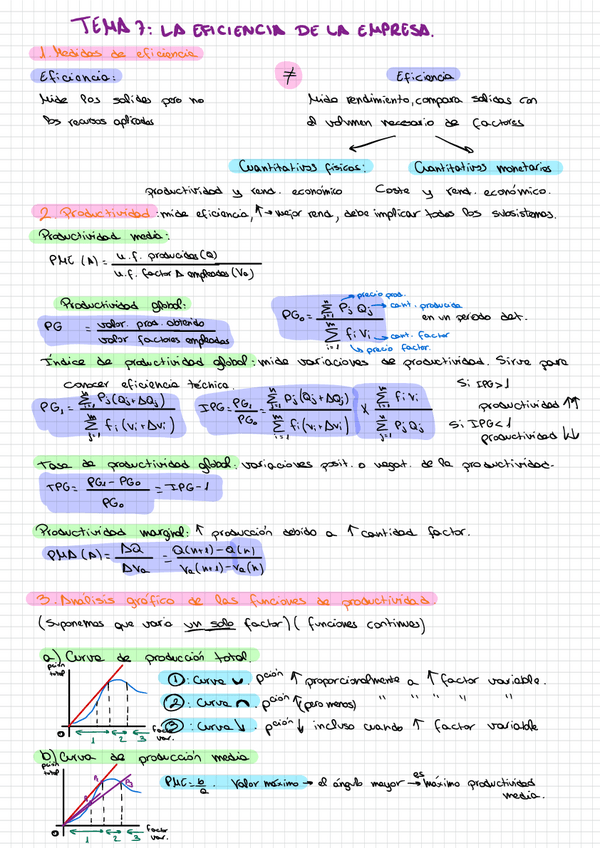 TEMA 7: LA EFICIENCIA DE LA EMPRESA.
1. Medidas de eficiencia
Eficiencia: ≠ Eficiencia
Mide las salidas pero no Mide rendimiento, compara salidas con
los recursos aplicados el volumen necesario de factores
Cuantitativos físicos: Cuantitativos monetarios
productividad y rend. económico Coste y rend. económico.
2. Productividad: mide eficiencia, ↑→ mejor rend, debe implicar todos los subsistemas.
Productividad media:
PMe (A) = u.f. producidas (Q) / u.f. factor A empleadas (Va)
Productividad global: PG₀ = Σ Pj Qj / Σ fi Vi → precio prod. → cant. producida en un periodo det.
PG = valor prod. obtenido / valor factores empleados → cant. factor ↳ precio factor.
Índice de productividad global: mide variaciones de productividad. Sirve para
conocer eficiencia técnica. Si IPG>1
PG₁ = Σ Pj (Qj+ΔQj) / Σ fi (Vi+ΔVi) IPG = PG₁ / PG₀ = Σ Pj (Qj+ΔQj) / Σ fi (Vi+ΔVi) × Σ fi Vi / Σ Pj Qj productividad ↑↑
Si IPG<1
productividad ↓↓
Tasa de productividad global: variaciones posit. o negat. de la productividad.
TPG = PG₁ - PG₀ / PG₀ = IPG - 1
Productividad marginal: ↑ producción debido a ↑ cantidad factor.
PMA (A) = ΔQ / ΔVa = Q(n+1) - Q(n) / Va(n+1) - Va(n)
3. Análisis gráfico de las funciones de productividad
(Suponemos que varía un solo factor) (funciones continues)
a) Curva de producción total.
pción total
①: curva ∪. pción ↑ proporcionalmente a ↑ factor variable.
②: curva ∩. pción ↑ (pero menos) " " " "
③: curva ↓. pción ↓ incluso cuando ↑ factor variable
0 1 2 3 factor var.
b) Curva de producción media
pción total
PMe = b/a. Valor máximo → el ángulo mayor → es máximo productividad
media.
0 1 2 3 factor var.